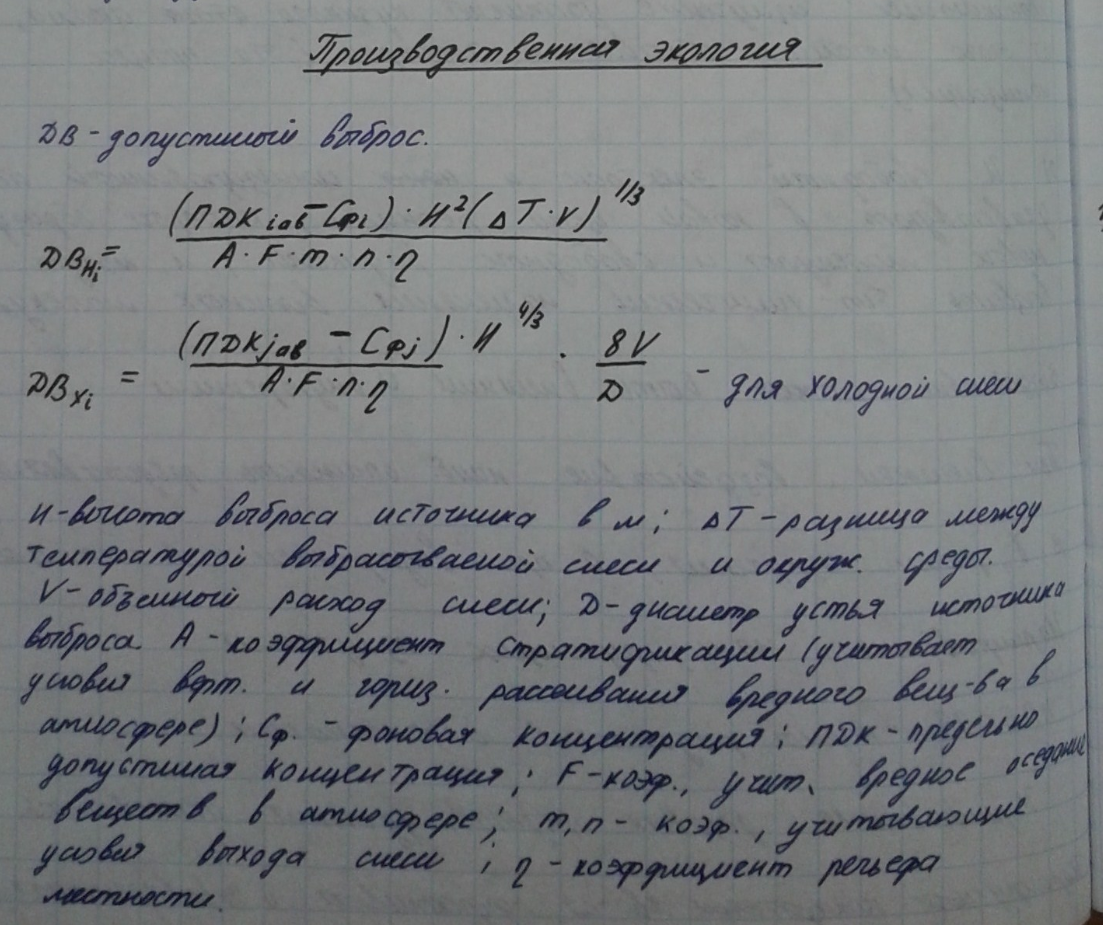 Производственная экология
ДВ - допустимый выброс.
ДВ_Нi = (ПДК_iав - Сф_i) · Н² (ΔT · V)^1/3 / A · F · m · n · η
ДВ_Xi = (ПДК_jав - Сф_j) · Н^4/3 / A · F · n · η · 8V / D - для холодной смеси
Н - высота выброса источника в м; ΔT - разница между
температурой выбрасываемой смеси и окруж. среды.
V - объемный расход смеси; D - диаметр устья источника
выброса. А - коэффициент стратификации (учитывает
условия верт. и гориз. рассеивания вредного вещ-ва в
атмосфере); Сф. - фоновая концентрация; ПДК - предельно
допустимая концентрация; F - коэф., учит. вредное оседание
веществ в атмосфере; m, n - коэф., учитывающие
условия выхода смеси; η - коэффициент рельефа
местности.